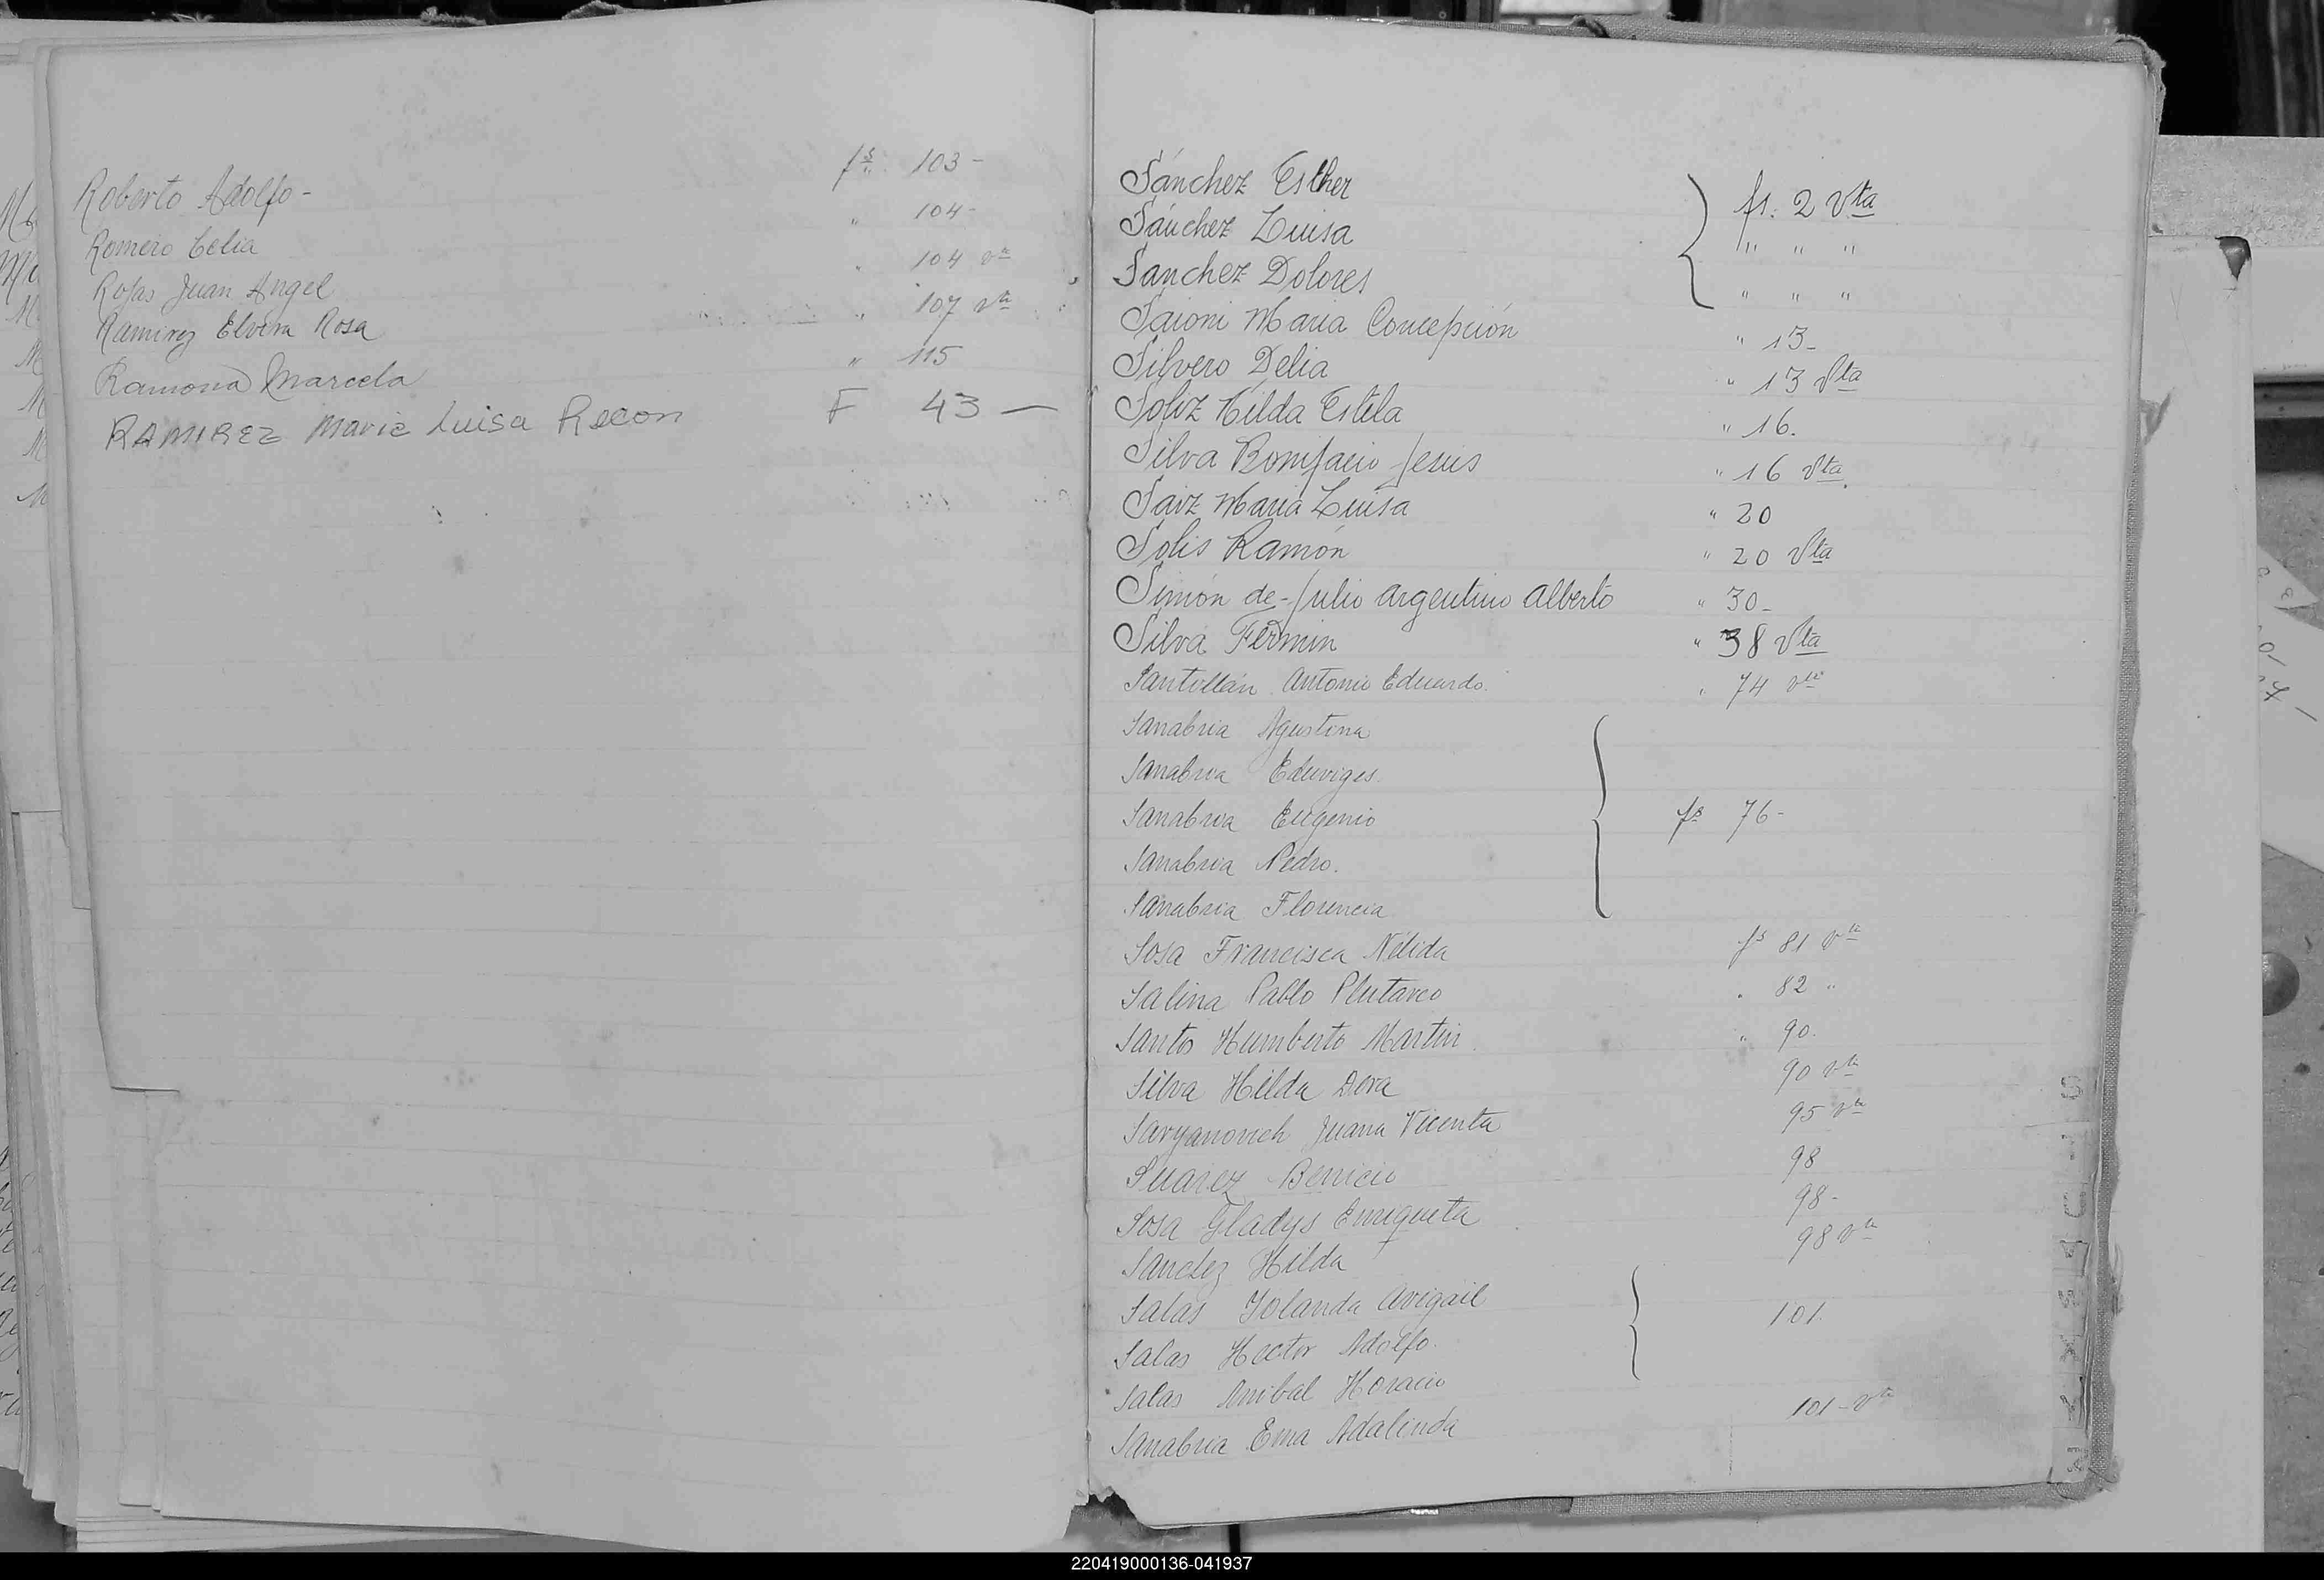 Roberto Adolfo - fs. 103 -
Romero Celia " 104 -
Rojas Juan Angel " 104 vta
Ramirez Elvira Rosa " 107 vta
Ramona Marcela " 115
RAMIREZ Maria Luisa Recon F 43 —
Sánchez Esther fs. 2 Vta
Sánchez Luisa " " "
Sanchez Dolores " " "
Saioni Maria Concepción " 13 -
Silvero Delia " 13 Vta
Soliz Hilda Estela " 16.
Silva Bonifacio Jesús " 16 Vta.
Saiz Maria Luisa " 20
Solis Ramón " 20 Vta
Simón de - Julio Argentino Alberto " 30 -
Silva Fermin " 38 Vta
Santillán Antonio Eduardo. " 74 vta
Sanabria Agustina
Sanabria Eduviges.
Sanabria Eugenio fs 76 -
Sanabria Pedro.
Sanabria Florencia
Sosa Francisca Nélida fs 81 vta
Salina Pablo Plutarco " 82 "
Santos Humberto Martin " 90.
Silva Hilda Dora 90 vta
Saryanovich Juana Vicenta 95 vta
Suarez Benicio 98
Sosa Gladys Enriqueta 98 -
Sanchez Hilda 98 vta
Salas Yolanda Avigail
Salas Hector Adolfo. 101.
Salas Anibal Horacio
Sanabria Ema Adalinda 101 - vta
220419000136-041937